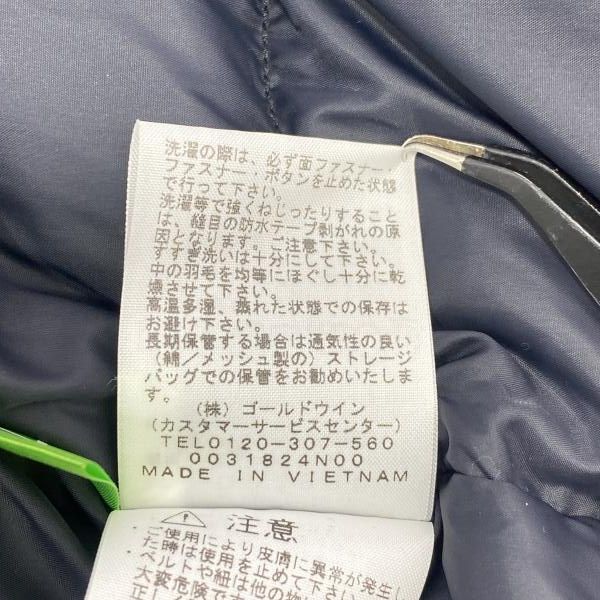 洗濯の際は、必ず面ファスナー・
ファスナー・ボタンを止めた状態
で行って下さい。
洗濯等で強くねじったりすること
は、縫目の防水テープ剥がれの原
因となります。ご注意下さい。
すすぎ洗いは十分にして下さい。
中の羽毛を均等にほぐし十分に乾
燥させて下さい。
高温多湿、蒸れた状態での保存は
お避け下さい。
長期保管する場合は通気性の良い
(綿/メッシュ製の)ストレージ
バッグでの保管をお勧めいたしま
す。
(株)ゴールドウイン
(カスタマーサービスセンター)
TEL0120-307-560
0031824N00
MADE IN VIETNAM
注意
ご使用により皮膚に異常が発生し
た時は使用を止めて下さい。
ベルトや紐は他の物
大変危険です
正し